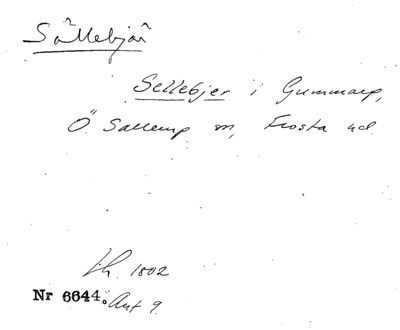 Sällebjär
Sellebjer i Gummarp,
Ö. Sallerup sn, Frosta hd.
1802
Nr 6644. Ant 9.